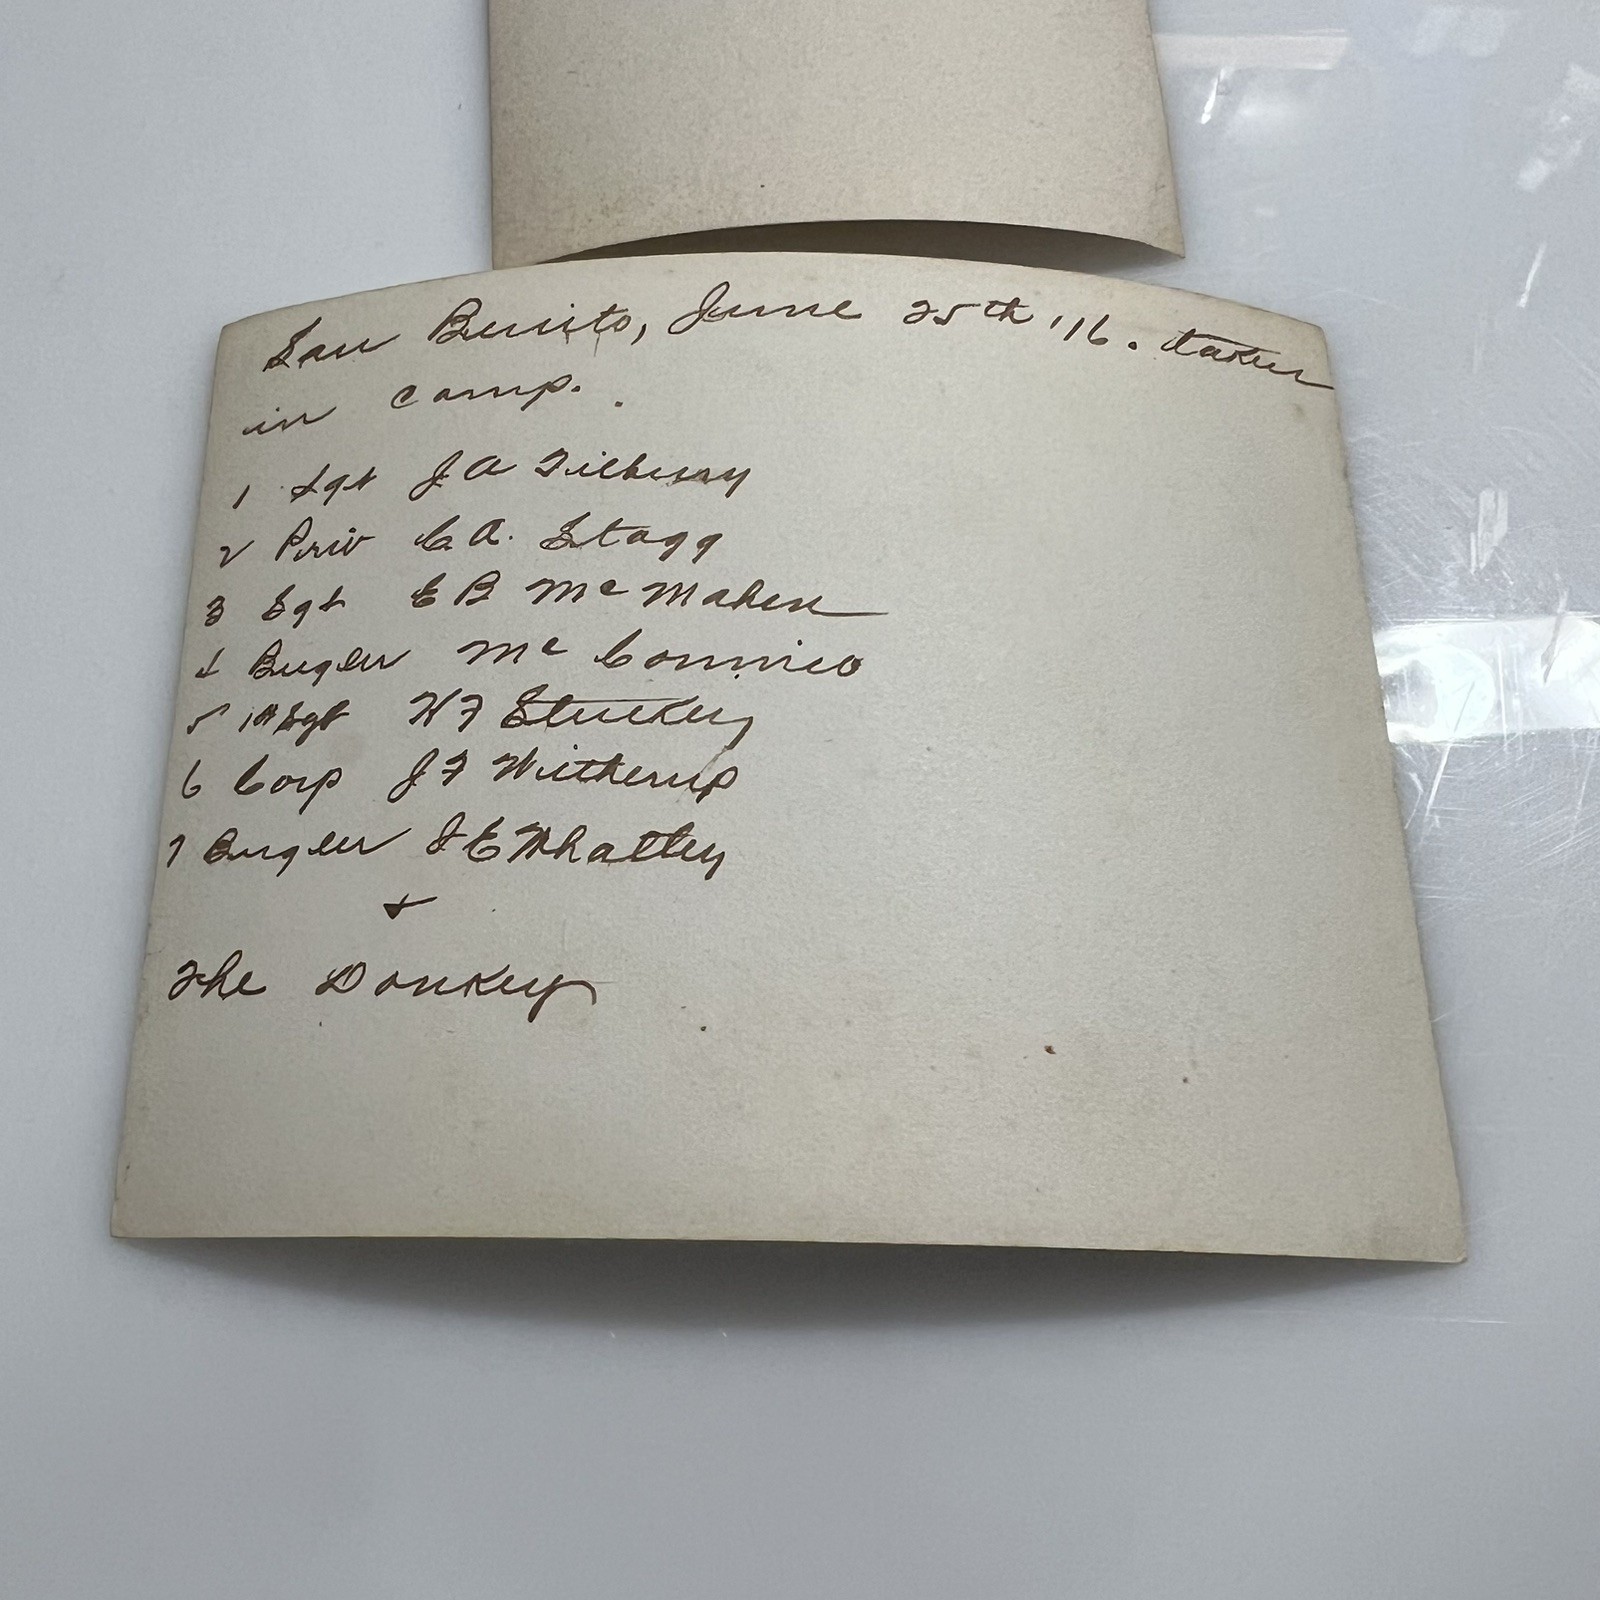 San Benito, June 25th '16. taken
in camp.
1 Sgt J A Tilbury
2 Priv C A. Stagg
3 Sgt E B McMahen
4 Bugler McConnico
5 1st Sgt H F Stuckey
6 Corp J F Witherup
7 Bugler J E Whatley
+
The Donkey